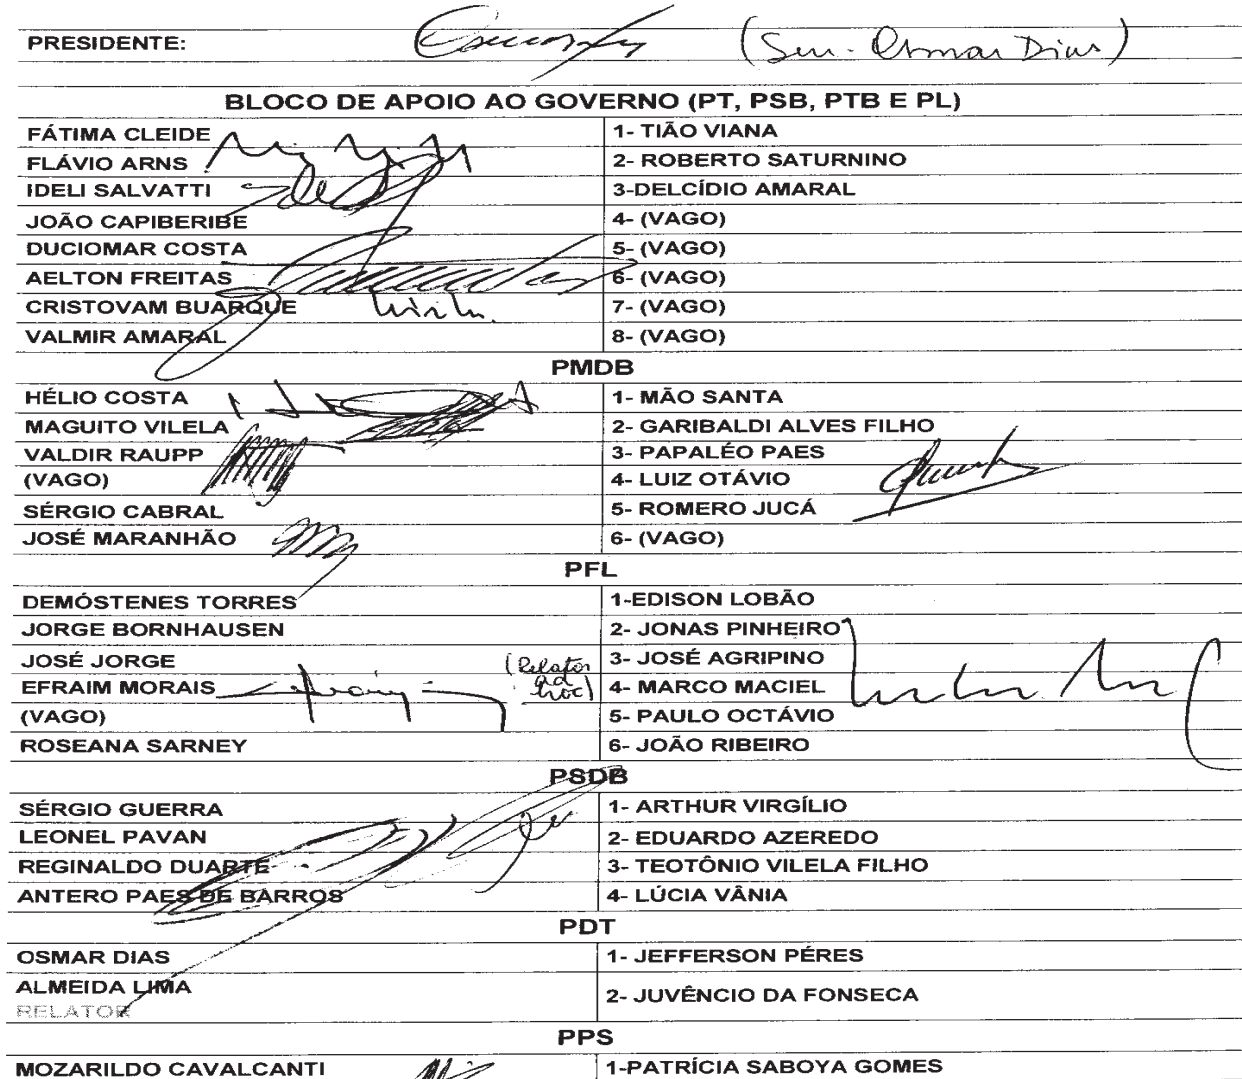 PRESIDENTE: (Sen. Osmar Dias)
BLOCO DE APOIO AO GOVERNO (PT, PSB, PTB E PL)
FÁTIMA CLEIDE 1- TIÃO VIANA
FLÁVIO ARNS 2- ROBERTO SATURNINO
IDELI SALVATTI 3-DELCÍDIO AMARAL
JOÃO CAPIBERIBE 4- (VAGO)
DUCIOMAR COSTA 5- (VAGO)
AELTON FREITAS 6- (VAGO)
CRISTOVAM BUARQUE 7- (VAGO)
VALMIR AMARAL 8- (VAGO)
PMDB
HÉLIO COSTA 1- MÃO SANTA
MAGUITO VILELA 2- GARIBALDI ALVES FILHO
VALDIR RAUPP 3- PAPALÉO PAES
(VAGO) 4- LUIZ OTÁVIO
SÉRGIO CABRAL 5- ROMERO JUCÁ
JOSÉ MARANHÃO 6- (VAGO)
PFL
DEMÓSTENES TORRES 1-EDISON LOBÃO
JORGE BORNHAUSEN 2- JONAS PINHEIRO
JOSÉ JORGE (Relator 3- JOSÉ AGRIPINO
EFRAIM MORAIS ad hoc) 4- MARCO MACIEL
(VAGO) 5- PAULO OCTÁVIO
ROSEANA SARNEY 6- JOÃO RIBEIRO
PSDB
SÉRGIO GUERRA 1- ARTHUR VIRGÍLIO
LEONEL PAVAN 2- EDUARDO AZEREDO
REGINALDO DUARTE 3- TEOTÔNIO VILELA FILHO
ANTERO PAES DE BARROS 4- LÚCIA VÂNIA
PDT
OSMAR DIAS 1- JEFFERSON PÉRES
ALMEIDA LIMA 2- JUVÊNCIO DA FONSECA
RELATOR
PPS
MOZARILDO CAVALCANTI 1-PATRÍCIA SABOYA GOMES